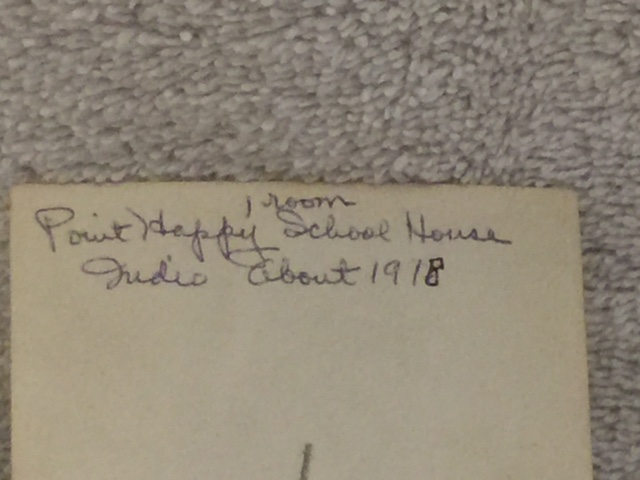 1 room
Point Happy School House
Indio About 1918